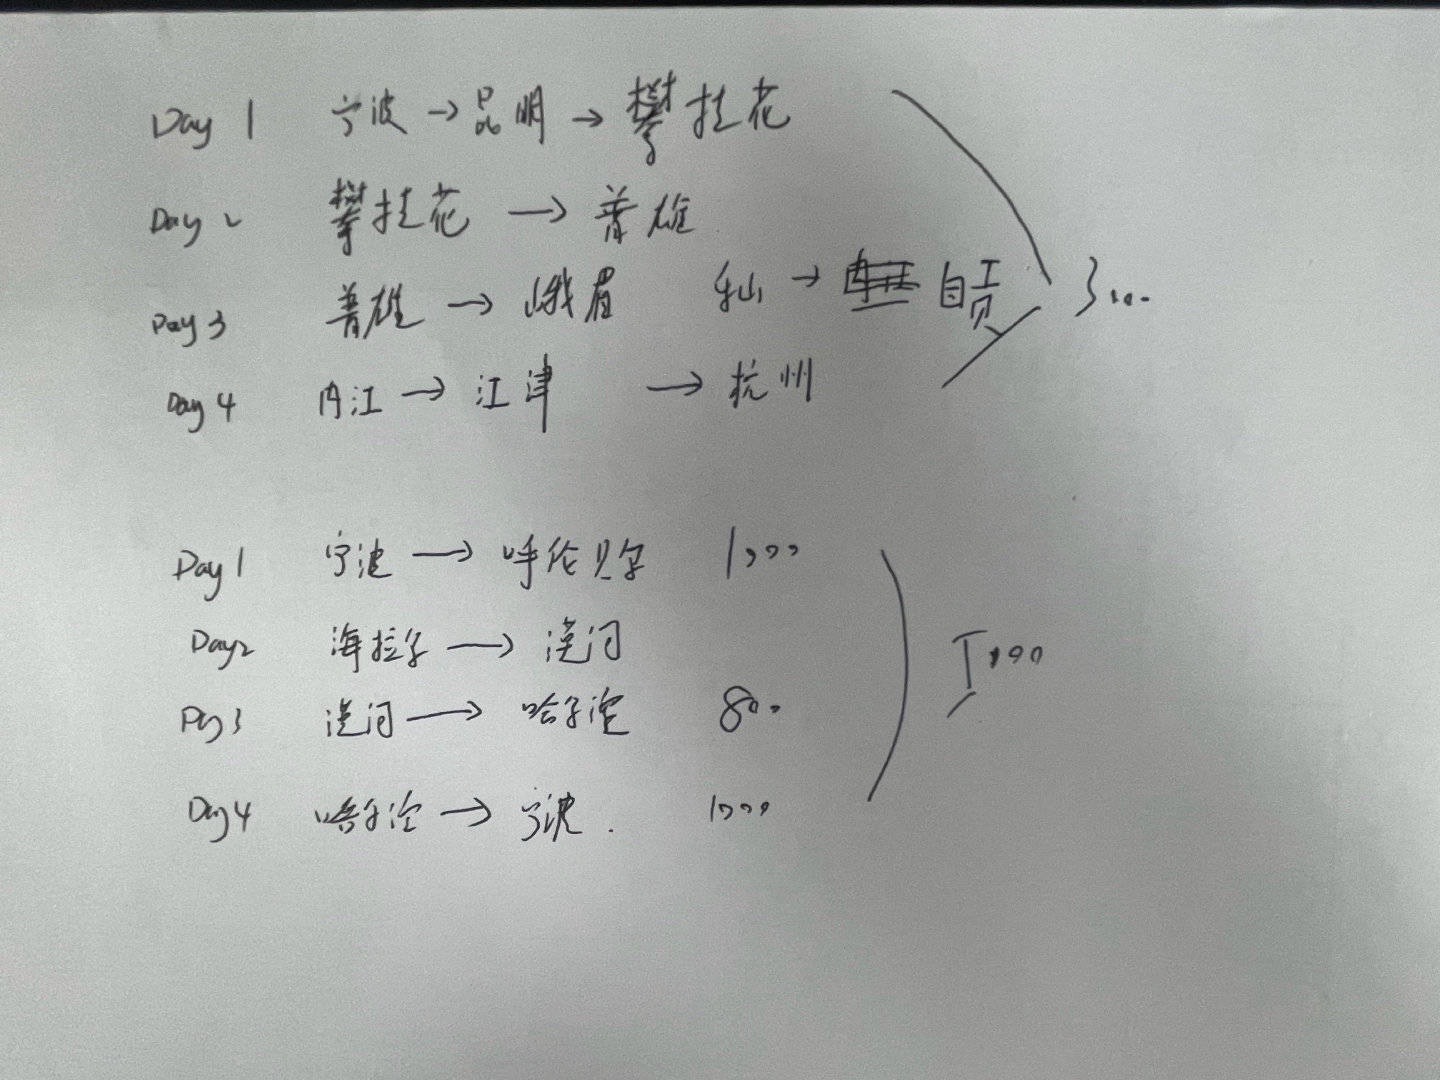 Day 1 宁波 → 昆明 → 攀枝花
Day 2 攀枝花 → 普雄
Day 3 普雄 → 峨眉 乐山 → 自贡 3000
Day 4 内江 → 江津 → 杭州
Day 1 宁波 → 呼伦贝尔 1000
Day2 海拉尔 → 漠河 5000
Day 3 漠河 → 哈尔滨 800
Day 4 哈尔滨 → 宁波. 1000